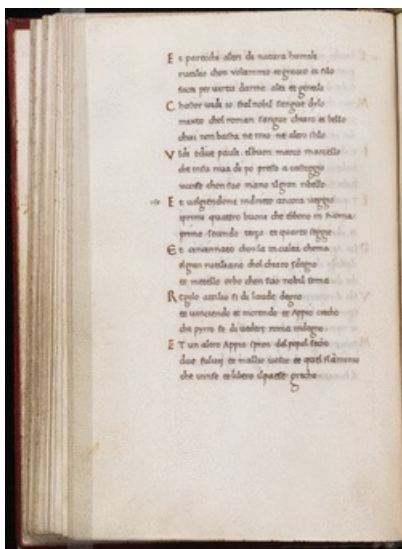 E t parechi altri di natura humile
rutilio chon volumnio et gracco et filo
facti per virtu darme alti et gentili
C
misto chol roman sangue chiaro et bello
chui non basta ne mio ne altro stilo
V idi e due paulo el buon marco marcello
che in su riva di po presso a casteggio
uccise chon suo mano el gran ribello
E t volgiendomi indrieto ancora veggio
i primi quattro buoni che ebbono in Roma
primo secondo terzo et quarto seggio
E t cincinnato chon la inculta chioma
el gran rutiliano chol chiaro sdegno
et metello orbo chon suo nobil soma
R egolo attilio si di laude degno
et vincendo et morendo et Appio ciecho
che pyrro fe di veder roma indegno
E T un altro Appio spron del popol seco
due fulvi et mallio volso et quel flaminio
che vinse et libero el paese grecho